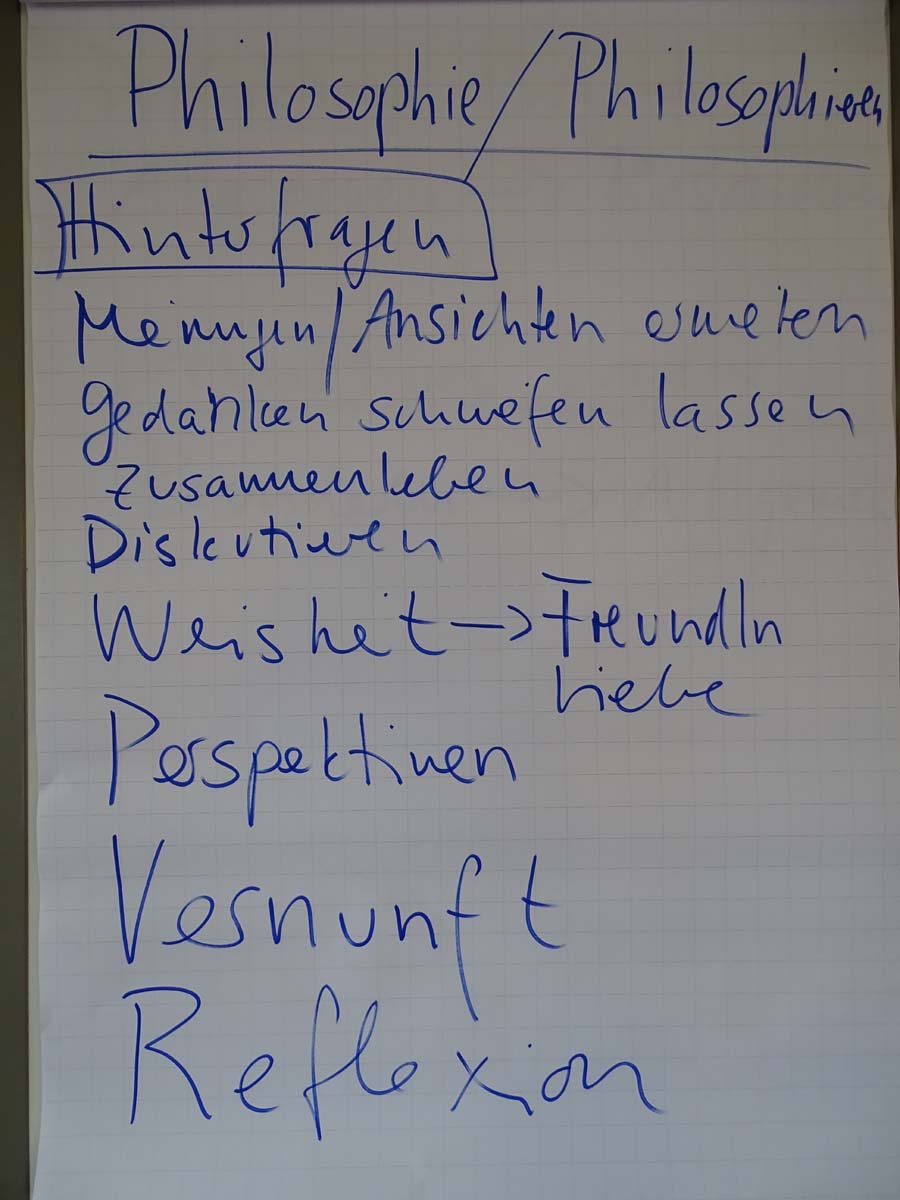 Philosophie / Philosophieren
Hinterfragen
Meinungen/Ansichten erweitern
Gedanken schweifen lassen
Zusammenleben
Diskutieren
Weisheit → FreundIn
Liebe
Perspektiven
Vernunft
Reflexion